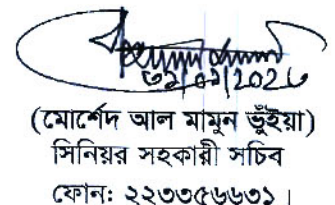 (মোর্শেদ আল মামুন ভুঁইয়া)
সিনিয়র সহকারী সচিব
ফোনঃ ২২৩৩৫৬৬৩১ ।